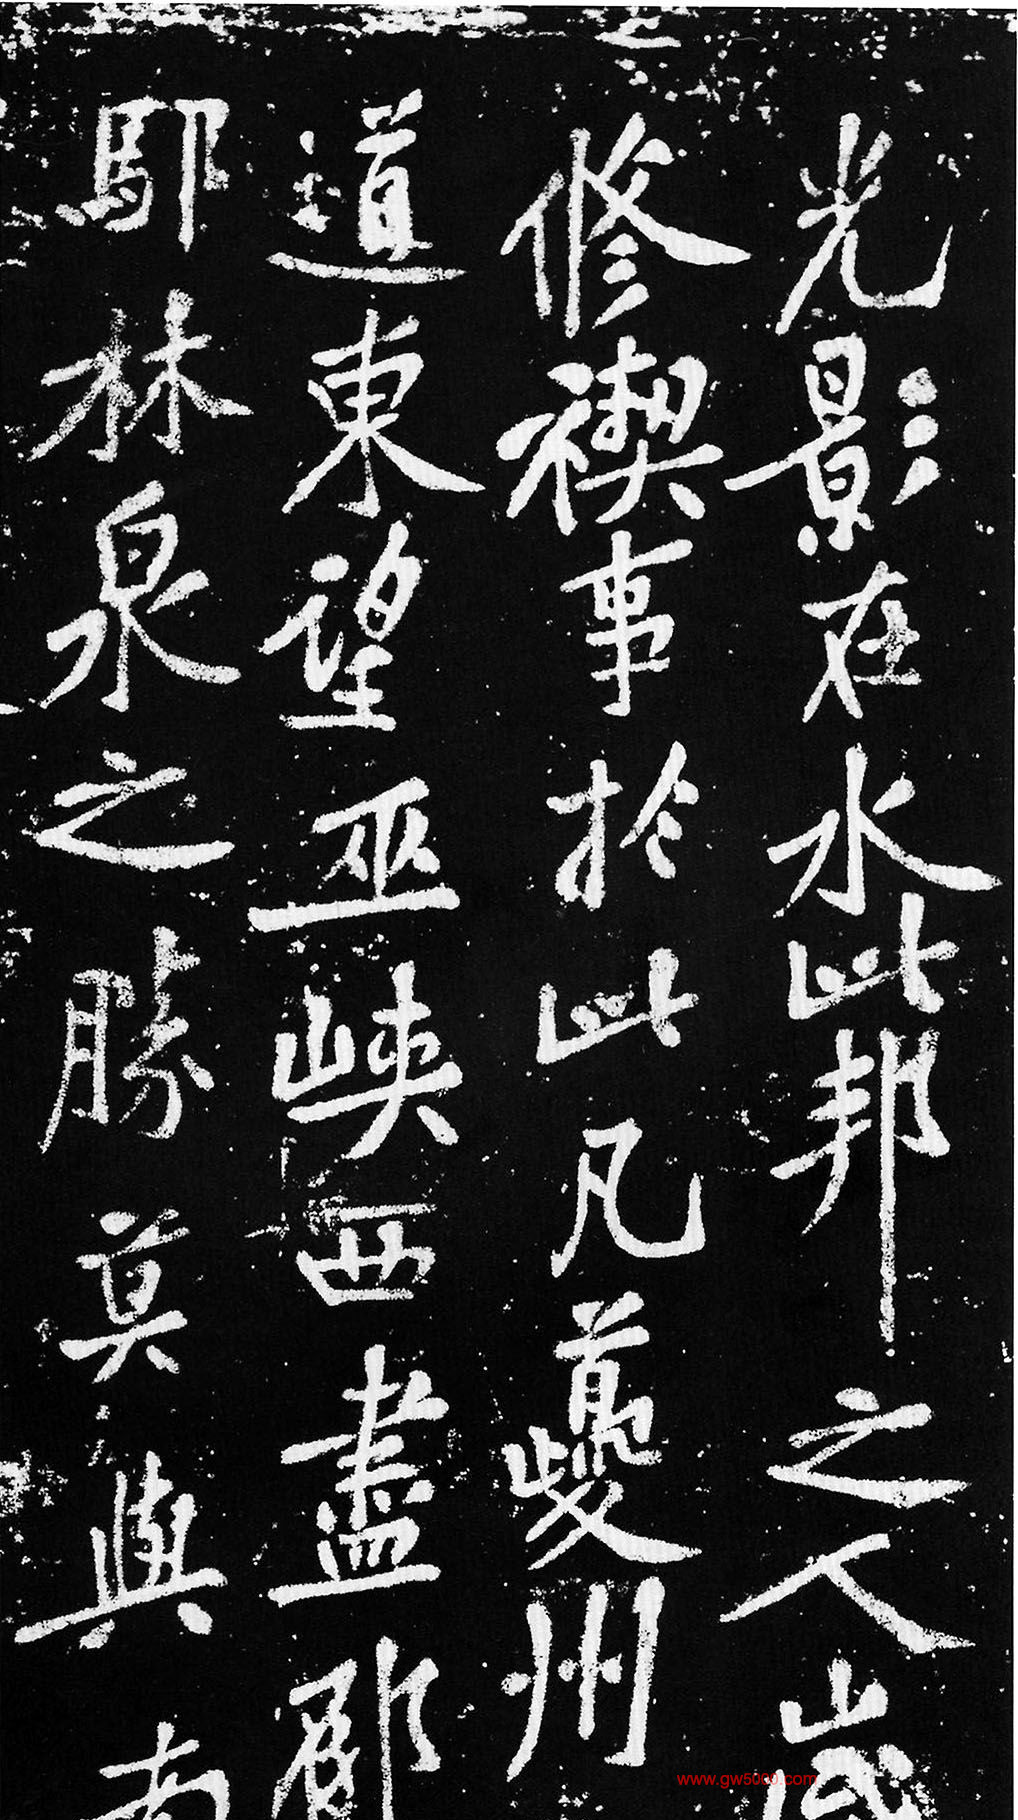 光影在水此邦之人歲
修禊事於此凡夔州
道東望巫峽西盡郁
鄢林泉之勝莫與南
www.gw5000.com